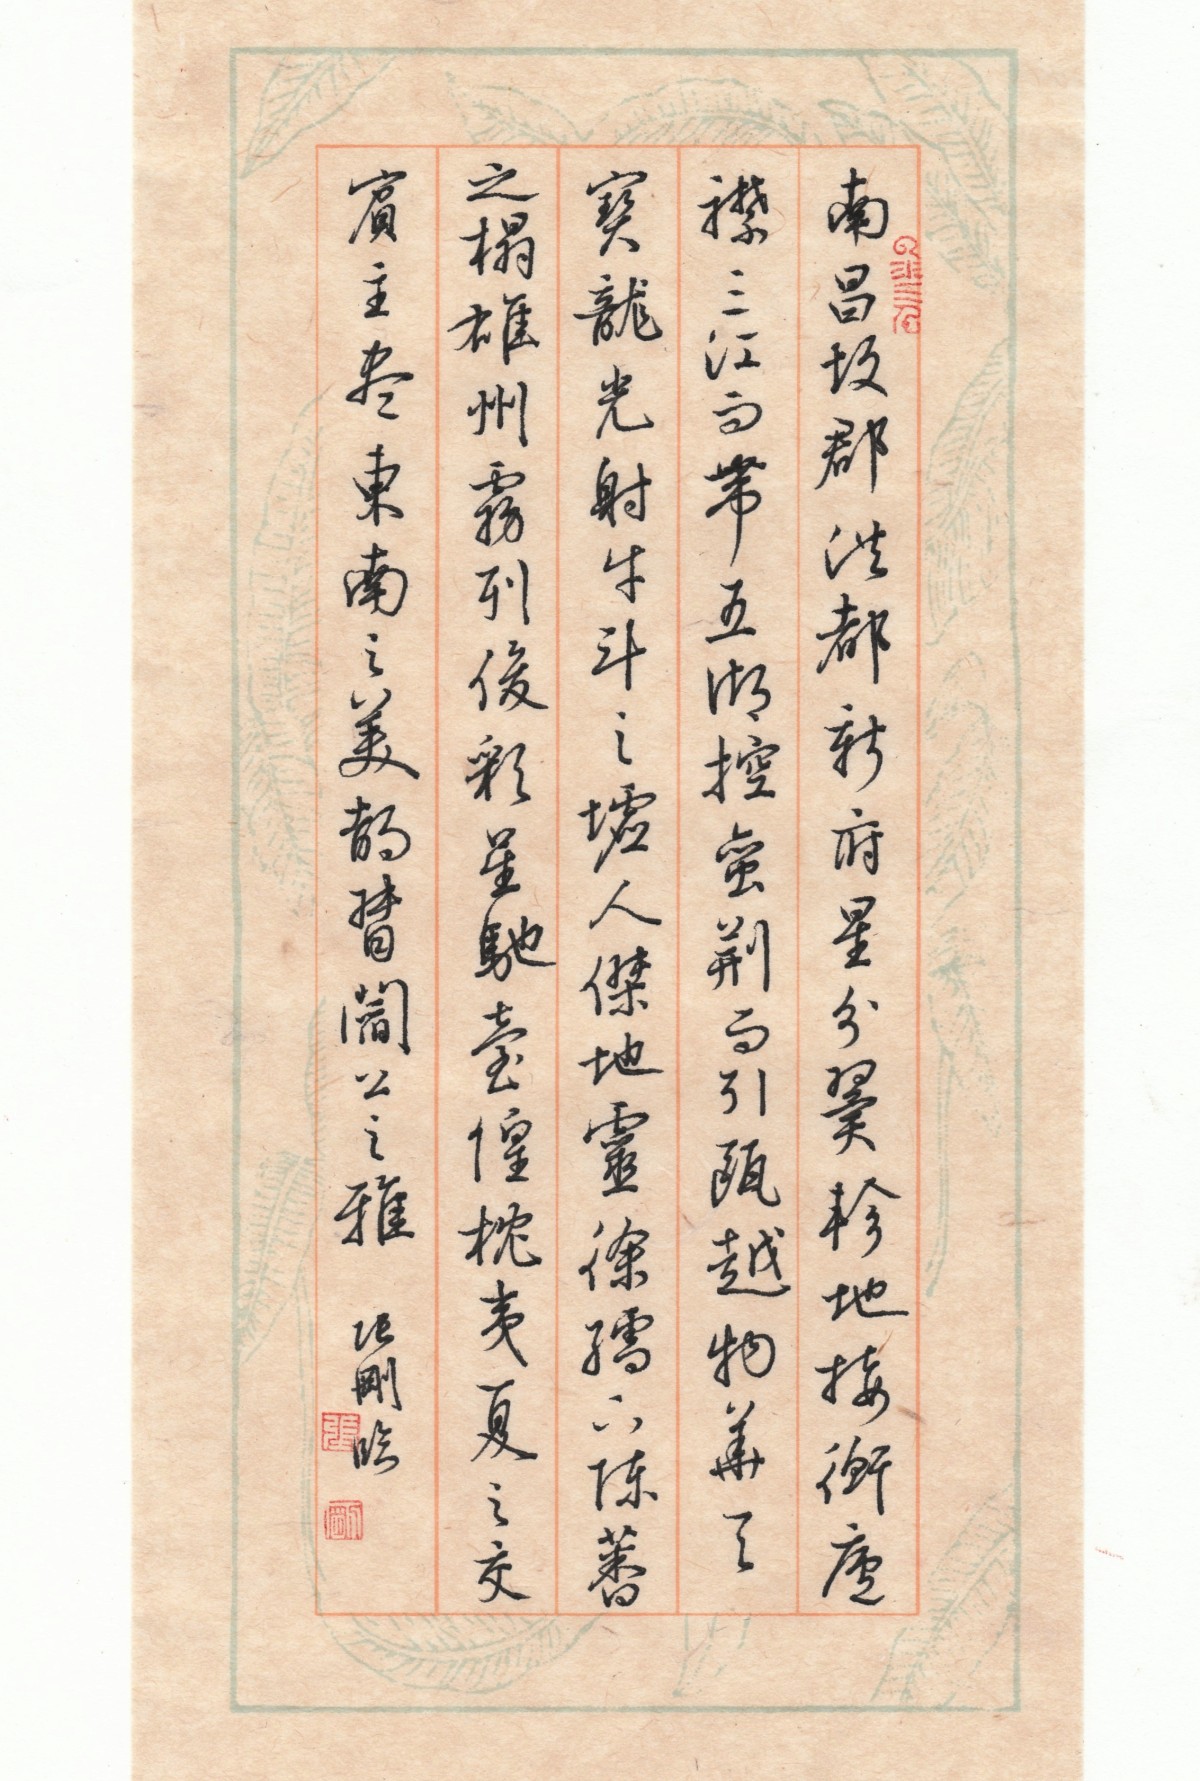 南昌故郡洪都新府星分翼軫地接衡廬
襟三江而帶五湖控蠻荊而引甌越物華天
寶龍光射牛斗之墟人傑地靈徐孺下陳蕃
之榻雄州霧列俊彩星馳臺隍枕夷夏之交
賓主盡東南之美都督閻公之雅 張剛臨
張
剛